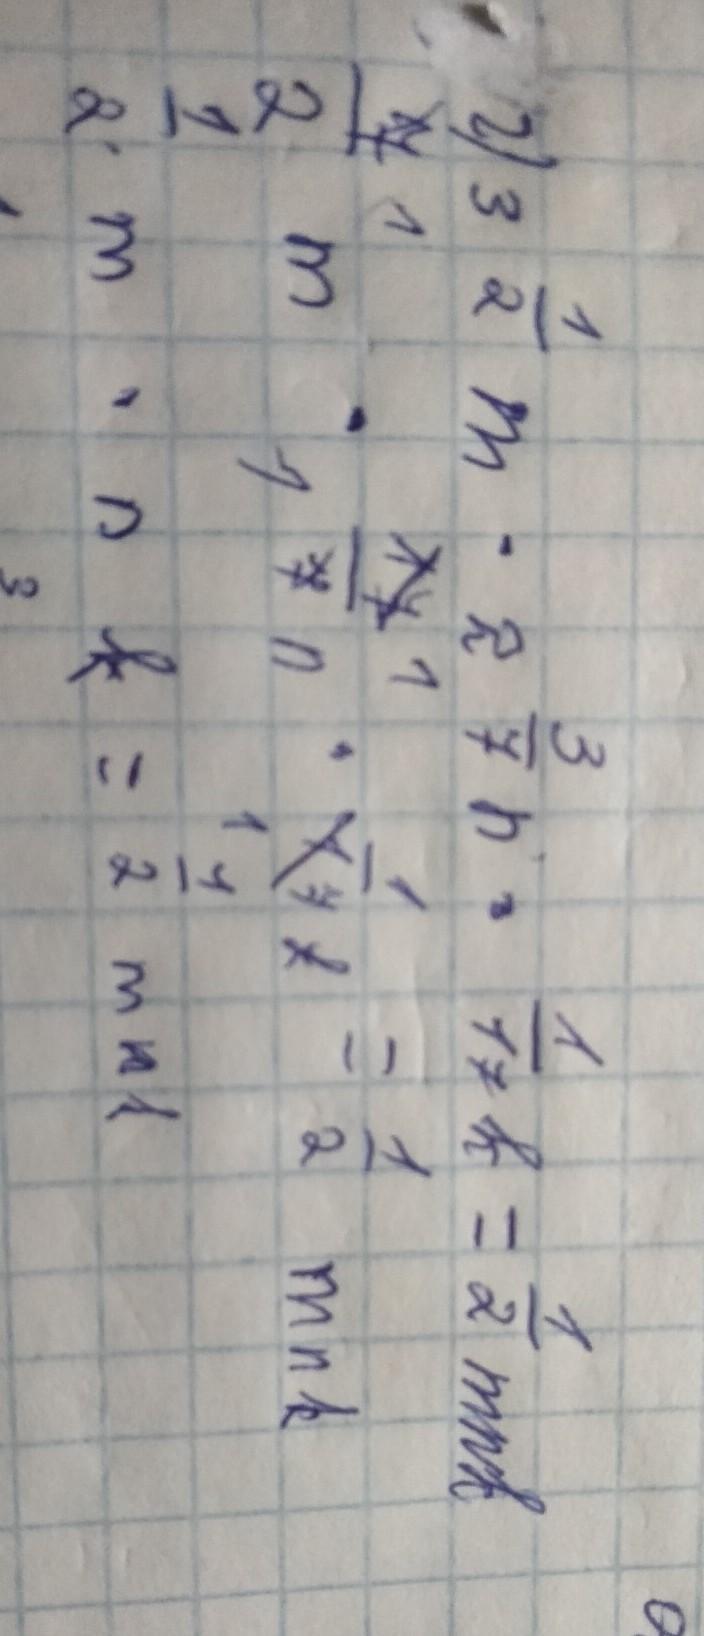 2) 3 1/2 m · 2 3/7 n · 1/17 k = 1/2 mnk
7/2 m · 17/7 n · 1/17 k = 1/2 mnk
1/2 m · n k = 1/2 mnk